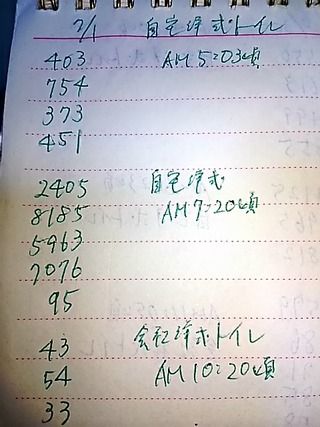 2/1 自宅洋式トイレ
403 AM5:03頃
754
373
451
2405 自宅洋式
8185 AM7:20頃
5963
7076
95
43 会社洋式トイレ
54 AM10:20頃
33